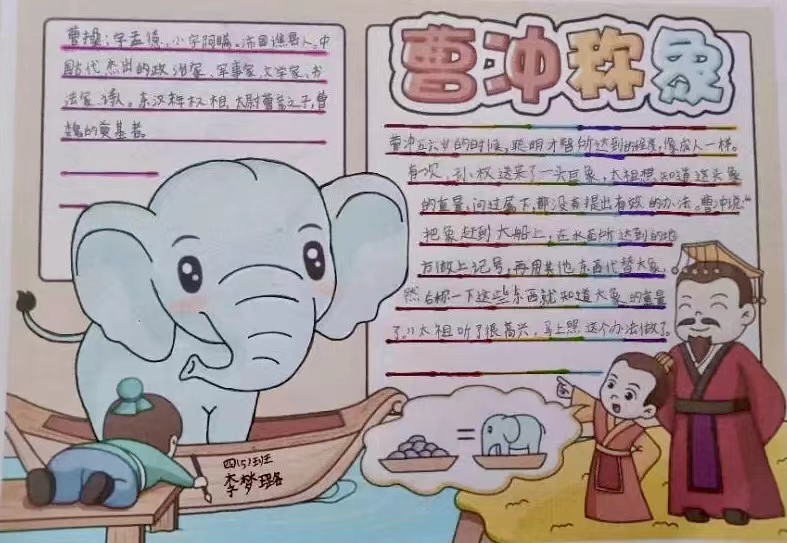 曹操,字孟德,小字阿瞒,沛国谯县人。中
国古代杰出的政治家、军事家、文学家、书
法家、诗人。东汉权相,太尉曹嵩之子,曹
魏的奠基者。
曹冲称象
曹冲五六岁的时候,聪明才智所达到的程度,像成人一样。
有一次,孙权送来了一头巨象,太祖想知道这头象
的重量,问过属下,都没有提出有效的办法。曹冲说:“
把象赶到大船上,在水面所达到的地
方做上记号,再用其他东西代替大象,
然后称一下这些东西就知道大象的重量
了。”太祖听了很高兴,马上照这个办法做了。
=
四(5)班
李梦璐